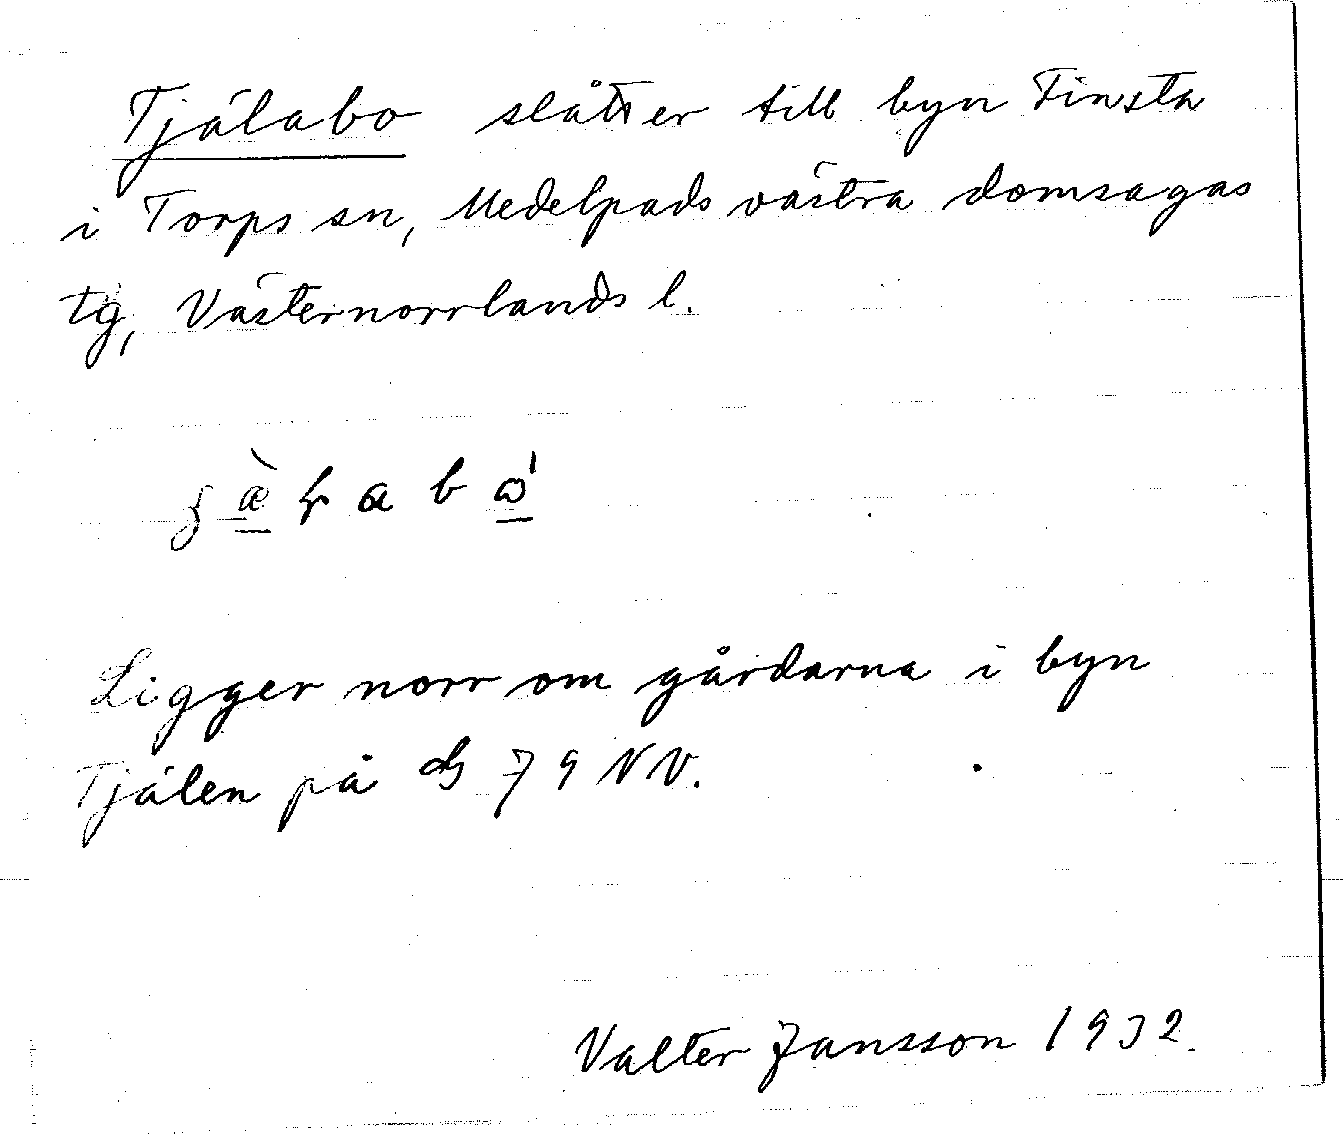 Tjälabo slåtter till byn Finsta
i Torps sn, Medelpads västra domsagas
tg, Västernorrlands l.
Ligger norr om gårdarna i byn
Tjälen på 79 NV.
Valter Jansson 1932.